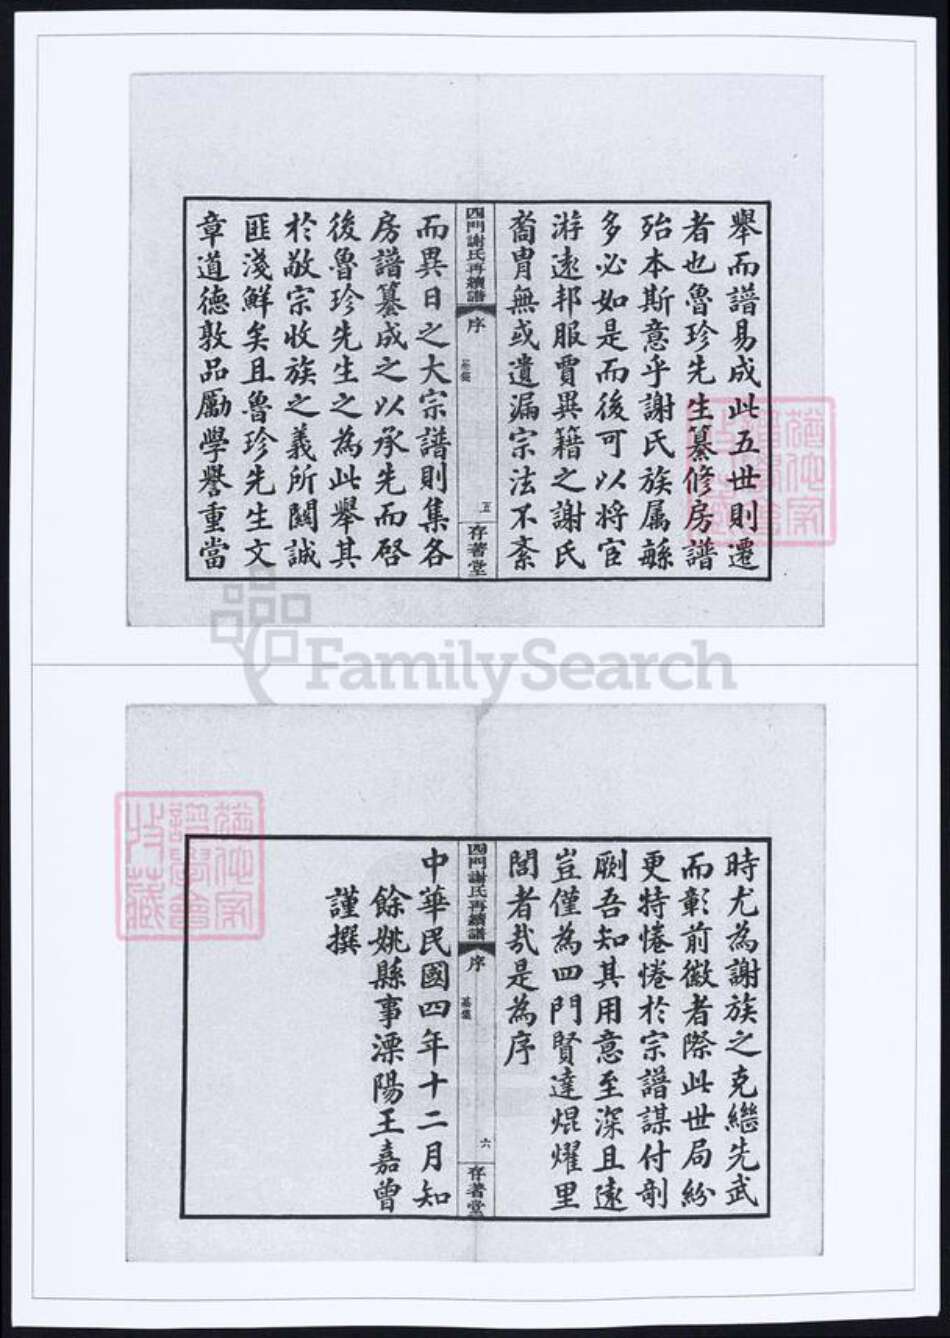 舉而譜易成此五世則遷
者也魯珍先生纂修房譜
殆本斯意乎謝氏族属繇
多必如是而後可以将宦
游遠邦服賈異籍之謝氏
裔胄無或遺漏宗法不紊
四門謝氏再續譜
序
五
存著堂
而異日之大宗譜則集各
房譜纂成之以承先而啓
後魯珍先生之為此舉其
於敬宗收族之義所關誠
匪淺鮮矣且魯珍先生文
章道德敦品勵學譽重當
FamilySearch
時尤為謝族之克繼先武
而彰前徽者際此世局紛
更特惓惓於宗譜謀付剞
劂吾知其用意至深且遠
豈僅為四門賢達焜燿里
閭者哉是為序
四門謝氏再續譜
序
六
存著堂
中華民國四年十二月知
餘姚縣事溧陽王嘉曾
謹撰